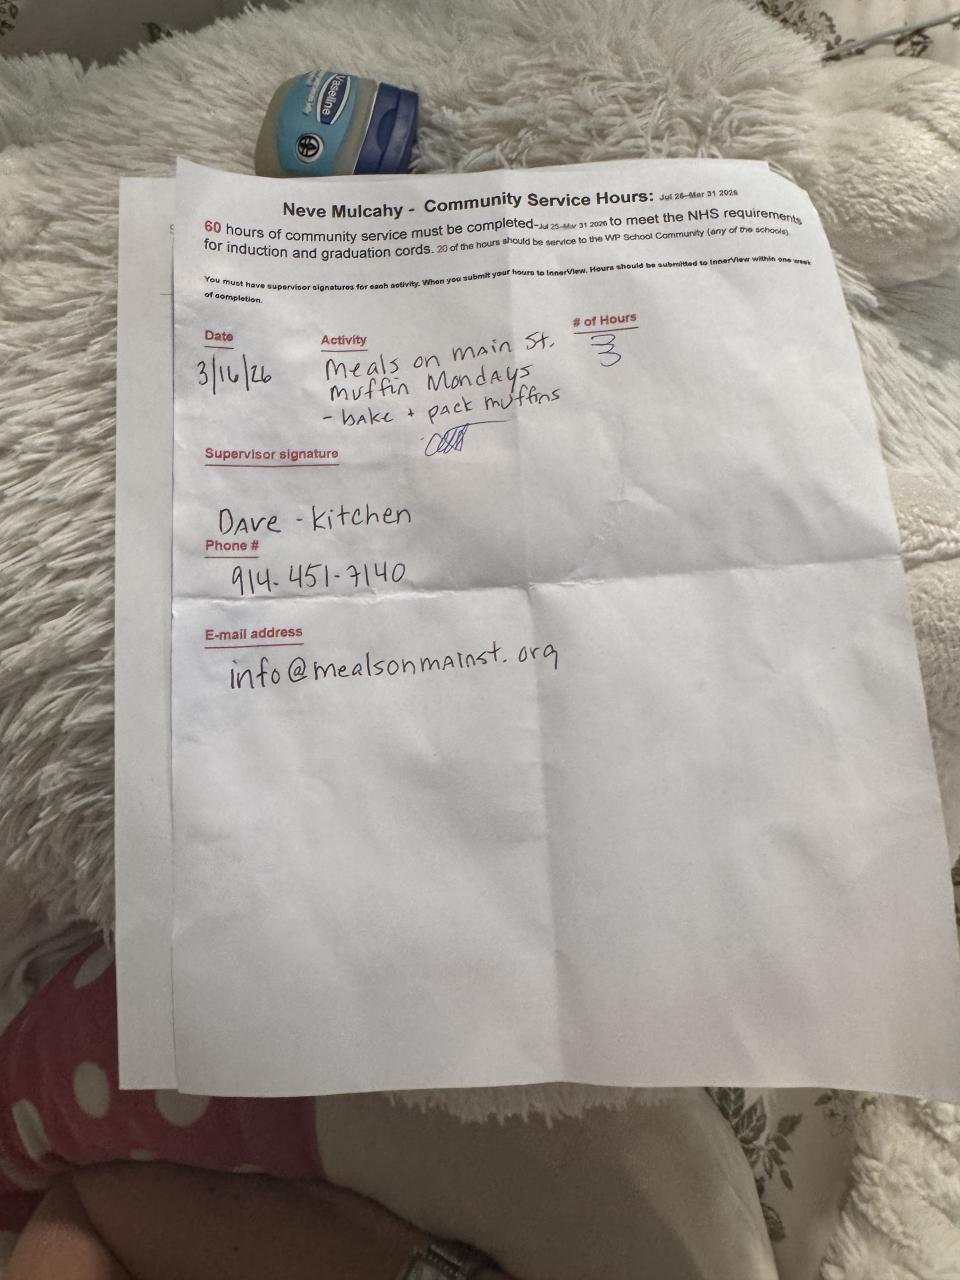 Vaseline
Neve Mulcahy - Community Service Hours: Jul 26-Mar 31 2026
60 hours of community service must be completed-Jul 25-Mar 31 2026 to meet the NHS requirements
for induction and graduation cords. 20 of the hours should be service to the WP School Community (any of the schools).
You must have supervisor signatures for each activity. When you submit your hours to InnerView. Hours should be submitted to InnerView within one week
of completion.
Date Activity # of Hours
3/16/26 Meals on Main St. 3
Muffin Mondays 3
- bake + pack muffins
Supervisor signature
Dave - Kitchen
Phone #
914-451-7140
E-mail address
info@mealsonmainst.org